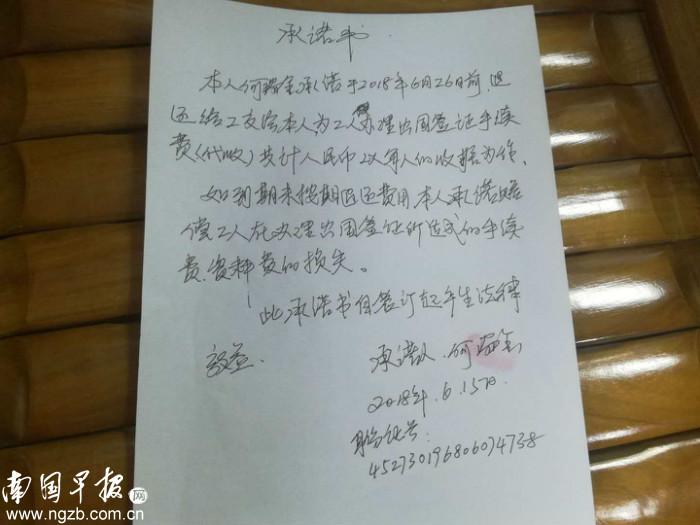 承诺书
本人何瑞金承诺于2018年6月26日前,退
还给工友交本人为工人办理出国签证手续
费(代收)共计人民币以每人的收据为作。
如到期未按期退还费用,本人承诺赔
偿工人在办理出国签证所造成的手续
费,资料费的损失。
此承诺书自签订起产生法律
效益.
承诺人.何瑞金
2018年.6.15日.
身份证号:
452730196806074738
南国早报网
www.ngzb.com.cn